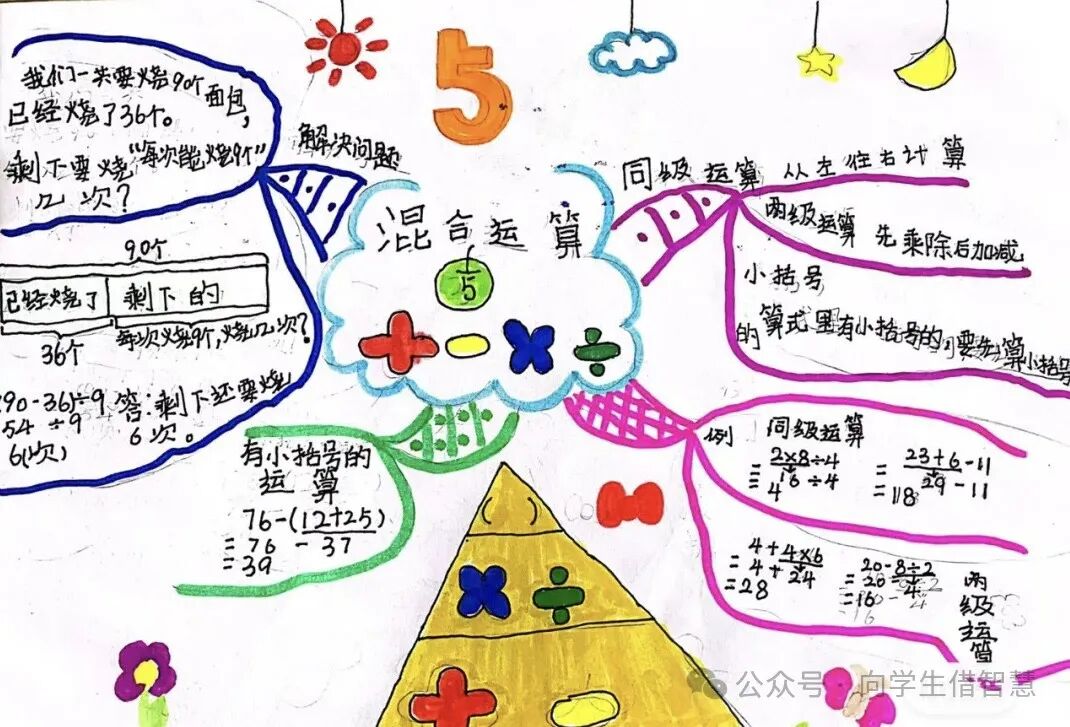 我们一共要烧90个面包,
已经烧了36个。
剩下要烧“每次能烧9个”
几次?
解决问题
90个
已经烧了 剩下的
36个 每次烧9个,烧几次?
(90-36)÷9
54÷9
6(次)
答:剩下还要烧
6次。
5
混合运算
5
+ - × ÷
同级运算 从左往右计算
两级运算 先乘除后加减
小括号
的算式里有小括号的,要先算小括号
有小括号的
运算
76-(12+25)
=76-37
=39
例 同级运算
2×8÷4
=16÷4
=4
23+6-11
=29-11
=18
4+4×6
=4+24
=28
20-8÷2
=20-4
=16
两级运算
( )
× ÷
+ -
公众号 · 向学生借智慧